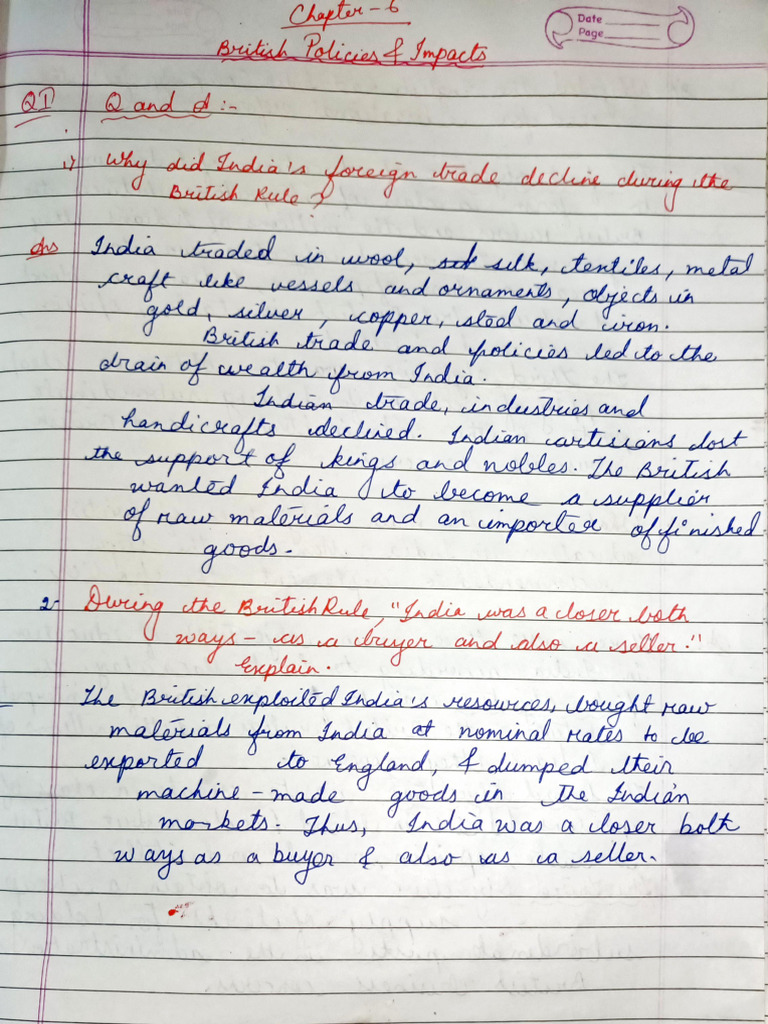 Chapter - 6
Date
Page
British Policies & Impacts
Q1 Q and d :-
1) Why did India's foreign trade decline during the
British Rule?
Ans India traded in wool, silk, textiles, metal
craft like vessels and ornaments, objects in
gold, silver, copper, steel and iron.
British trade and policies led to the
drain of wealth from India.
Indian trade, industries and
handicrafts declined. Indian artisians lost
the support of kings and nobles. The British
wanted India to become a supplier
of raw materials and an importer of finished
goods.
2- During the British Rule, "India was a loser both
ways - as a buyer and also a seller."
Explain.
The British exploited India's resources, bought raw
materials from India at nominal rates to be
exported to England, & dumped their
machine - made goods in the Indian
markets. Thus, India was a loser both
ways as a buyer & also as a seller.